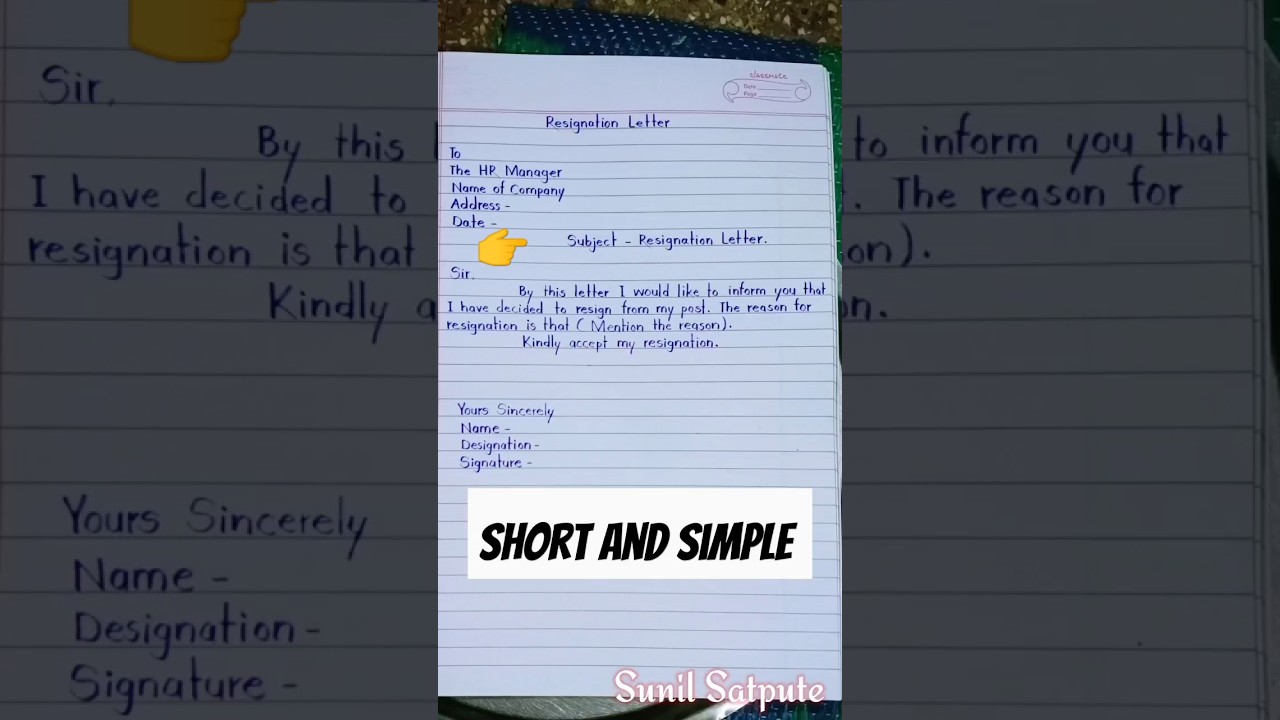 classmate
Date
Page
Resignation Letter
To
The HR Manager
Name of Company
Address -
Date -
Subject - Resignation Letter.
Sir,
By this letter I would like to inform you that
I have decided to resign from my post. The reason for
resignation is that ( Mention the reason).
Kindly accept my resignation.
Yours Sincerely
Name -
Designation -
Signature -
SHORT AND SIMPLE
Sunil Satpute